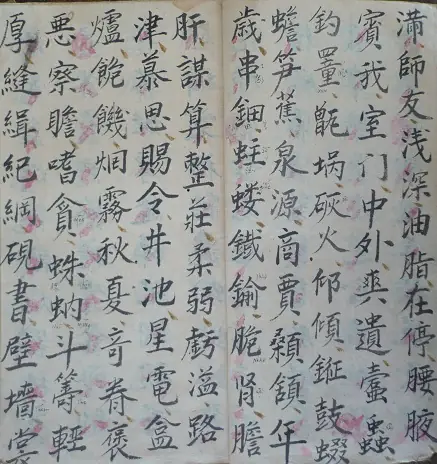 滿師友浅深油脂在停腰腋
賓我室门中外爽遺蠹蝨
釣罿瓹埚砍火仰傾鉦鼓蝃
蟾笋蕉泉源商賈顙頷年
歲串鈿蛀蝼鐵鍮脆肾膽
肝謀算整莊柔弱虧溢路
津慕思賜令井池星電盒
爐飽饑烔霧秋夏奇脊褒
悪察瞻嗜貪蛛蚋斗籌輕
厚縫緝紀綱硯書壁墻裳